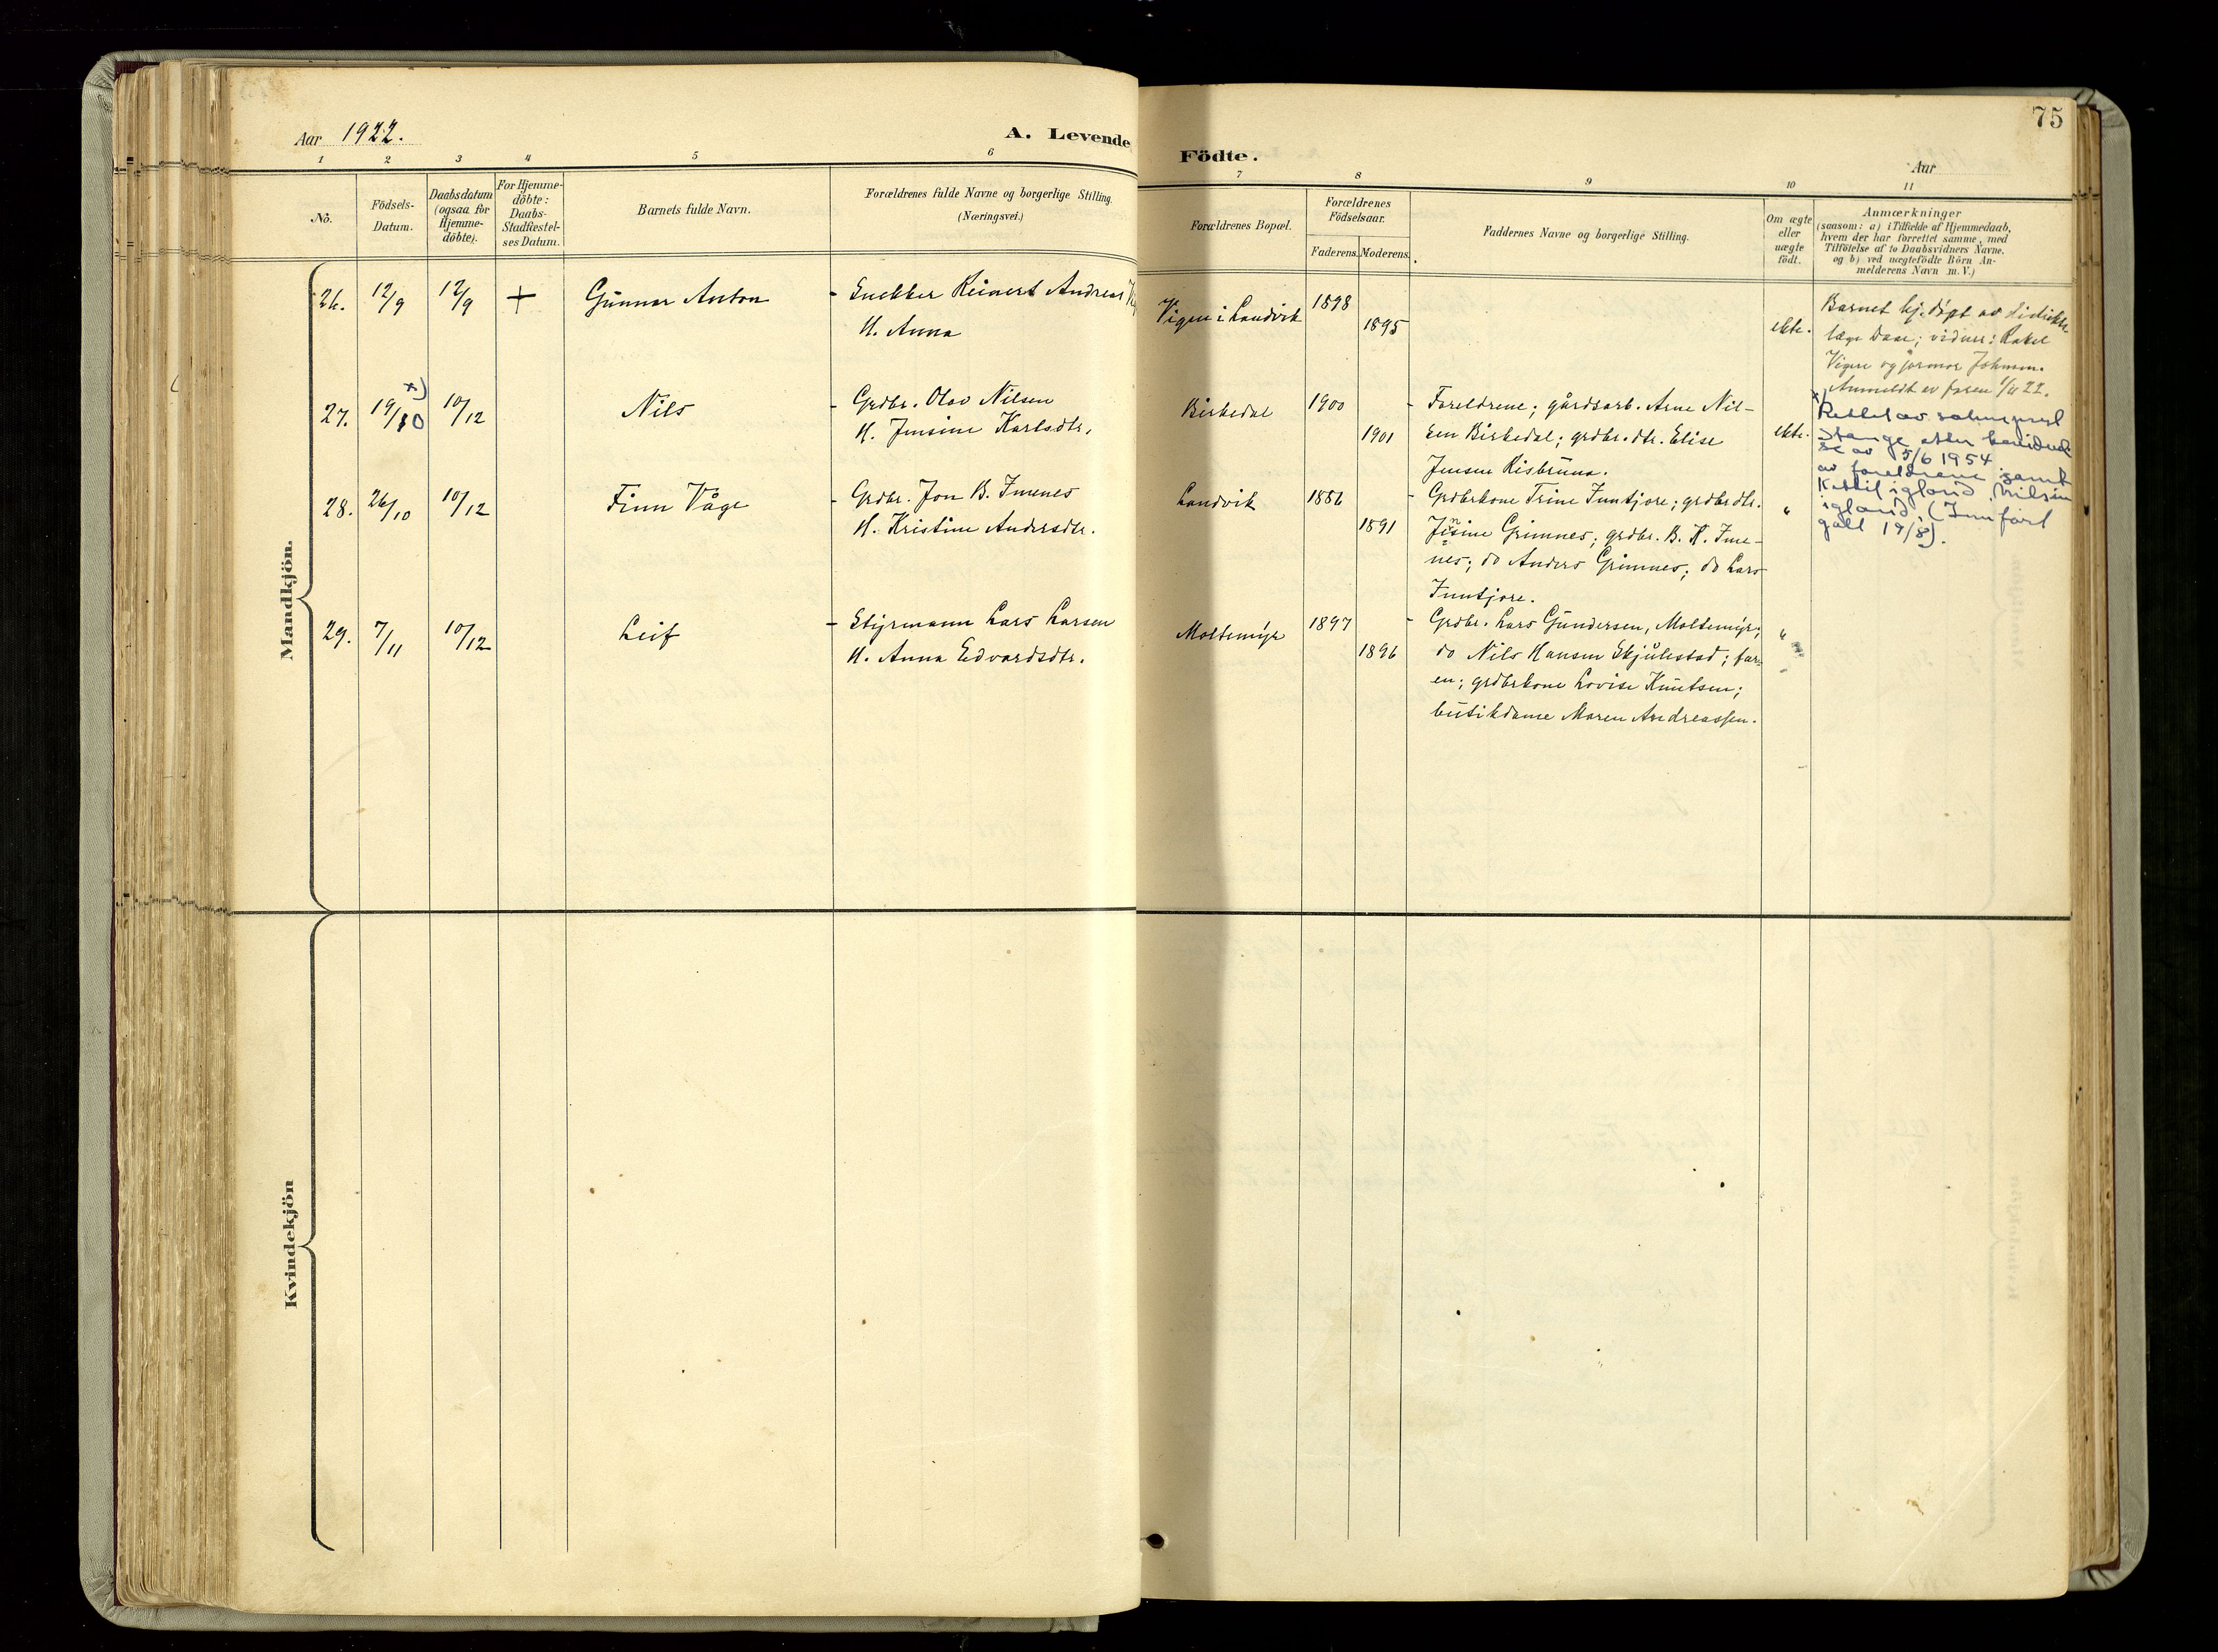 75
Aar 1922.
A. Levende
Födte.
Aar
1 2 3 4 5 6
7 8 9 10 11
No.
Födsels-
Datum.
Daabsdatum
(ogsaa for
Hjemme-
döbte).
For Hjemme-
döbte:
Daabs-
Stadfæstel-
ses Datum.
Barnets fulde Navn.
Forældrenes fulde Navne og borgerlige Stilling.
(Næringsvei.)
Forældrenes Bopæl.
Forældrenes
Födselsaar.
Faderens. Moderens.
Faddernes Navne og borgerlige Stilling.
Om ægte
eller
uægte
födt.
Anmærkninger
(saasom: a) i Tilfælde af Hjemmedaab,
hvem der har forrettet samme, med
Tilföielse af to Daabsvidners Navne.
og b) ved uægtefödte Börn An-
melderens Navn m.V.)
Mandkjön.
26. 12/9 12/9 + Gunnar Anton
- Snekker Reinert Andreas
H. Anna
Vigen i Landvik
1898
1895
ekte.
Barnet hj.døpt av
læge Daae; vidner: Rakel
Vigen og jormor Johnsen.
Anmeldt av faren
27. 19/10 x) 10/12 Nils
- Grdbr. Olav Nilsen
H. Jensine Karlsdtr.
Birkedal
1900
1901
- Foreldrene; gårdsarb. Arne Nil-
sen Birkedal; grdbr.dtr. Elise
Jensen Risbruna.
ekte.
x) Rettet av
Stange etter
se av 5/6 1954
av foreldrene samt
Kettil igland, Nilsine
igland. (Innført
galt 19/8).
28. 26/10 10/12 Finn Våge
- Grdbr. Jon B. Imenes
H. Kristine Andersdtr.
Landvik
1886
1891
- Grdbrkone Trine Inntjore; grdbrdtr.
Jensine Grimnes; grdbr. B. K. Ime-
nes; do Anders Grimnes; do Lars
Inntjore.
"
29. 7/11 10/12 Leif
- Styrmann Lars Larsen
H. Anna Edvardsdtr.
Moltemyr
1897
1896
- Grdbr. Lars Gundersen, Moltemyr;
do Nils Hansen Skjulestad; far-
en; grdbrkone Lovise Knutsen;
butikdame Maren Andreassen.
"
Kvindekjön